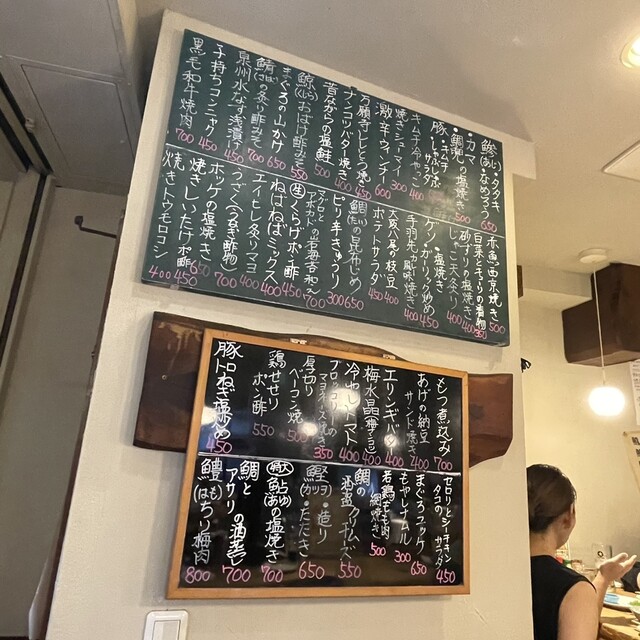 鯵(あじ)・タタキ・なめろう 650
・カマ
・鯛兜の塩焼き 500
豚しゃぶ サラダ 650
キムチ冷やっこ 400
焼きシューマイ 300
激辛ウインナー 600
万願寺ししとう焼 450
ナンコツバター焼き 400
昔ながらの塩鮭 500
鯨(くじら)おばけ酢みそ 550
まぐろの山かけ 650
鯖(さば)の炙り酢みそ 700
泉州水なす浅漬け 450
子持ちコンニャク 450
黒毛和牛焼肉 700
赤魚の西京焼き 500
白菜ときゅうりの漬物 350
砂ずりの塩焼き 400
じゃこ天炙り 400
ゲソガーリック炒め 450
手羽先・塩焼き 400
大阪八尾の枝豆 450
ポテトサラダ 450
鯛(たい)の昆布じめ 650
ピリ辛きゅうり 300
マグロとアボカドの岩海苔和え 700
生くらげポン酢 450
ねばねばミックス 400
エイヒレ炙りマヨ 400
うざく(うなぎ酢物) 700
ホッケの塩焼き 650
焼きしいたけポン酢 450
焼きトウモロコシ 400
もつ煮込み 700
あげの納豆サンド焼き 400
エリンギバター 400
梅水晶(梅チョコ) 400
冷やしトマト 400
ブロッコリーのマヨネーズ焼き 350
厚切りベーコン焼 500
鶏せせりポン酢 550
豚トロねぎ塩炒め 450
セロリとシーチキンタコのサラダ 450
まぐろユッケ 650
もやしナムル 300
若鶏もも肉網焼き 500
鯛の酒盗クリームチーズ 550
鰹(カツヲ)・造り・たたき 650
特大鮎(あゆ)の塩焼き 700
鯛とアサリの酒蒸し 700
鱧(はも)ちり梅肉 800